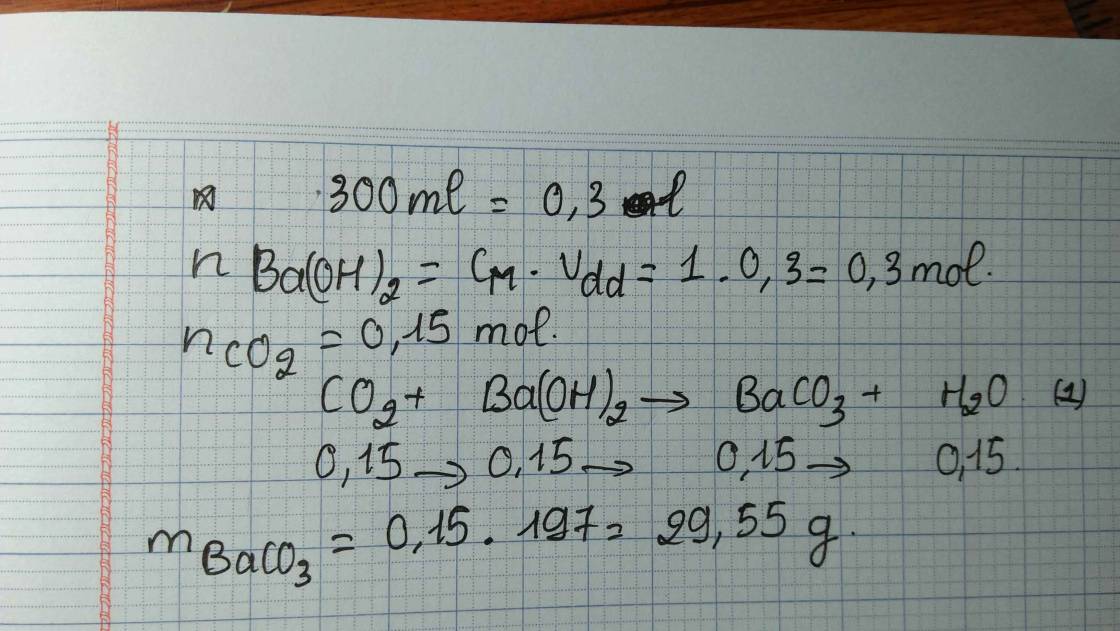 300ml = 0,3 l
n Ba(OH)₂ = C_M . V_dd = 1 . 0,3 = 0,3 mol.
n_CO₂ = 0,15 mol.
CO₂ + Ba(OH)₂ → BaCO₃ + H₂O (1)
0,15 → 0,15 → 0,15 → 0,15.
m_BaCO₃ = 0,15 . 197 = 29,55 g.